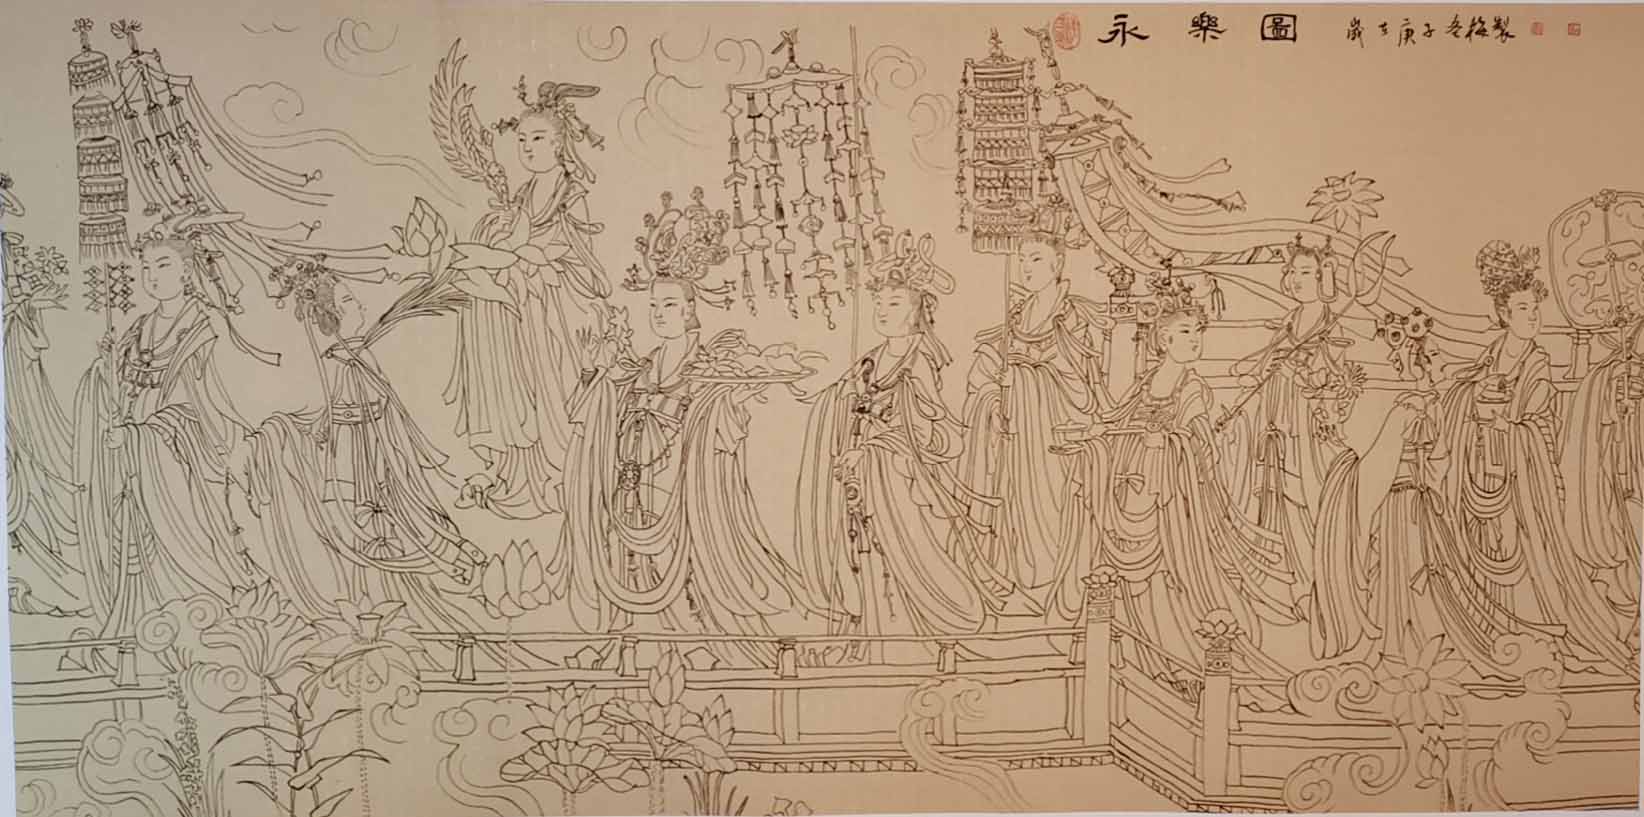 永樂圖 歲在庚子冬梅製